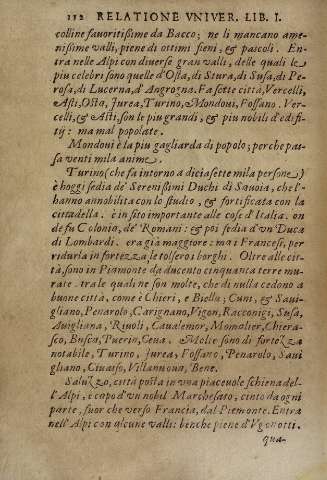 152 RELATIONE VNIVER. LIB. I.
colline fauoritißime da Bacco; ne li mancano ame-
nißime valli, piene di ottimi fieni, & pascoli. En
tra nelle Alpi con diuerse gran valli, delle quali le
piu celebri sono quelle d'Osta, di Stura, di Susa, di Pe-
rosa, di Lucerna, d'Angrogna. Fa sette città, Vercelli,
Asti, Osta, Iurea, Turino, Mondoui, Fossano. Ver-
celli, & Asti, son le piu grandi, & piu nobili d'edifi-
tij: ma mal popolate.
Mondoui è la piu gagliarda di popolo; perche pas-
sa venti mila anime.
Turino (che fa intorno a diciasette mila persone)
è hoggi sedia de' Serenißimi Duchi di Sauoia, che l'-
hanno annobilita con lo studio, & fortificata con la
cittadella. è in sito importante alle cose d'Italia. on
de fu Colonia, de' Romani: & poi sedia d'vn Duca
di Lombardi. era già maggiore: ma i Francesi, per
ridurla in fortezza le tolsero i borghi. Oltre alle cit-
tà, sono in Piamonte da ducento cinquanta terre mu-
rate. tra le quali ne son molte, che di nulla cedono a
buone città, come è Chieri, e Biella, Cuni, & Saui-
gliano, Penarolo, Carignano, Vigon, Racconigi, Susa,
Auigliana, Riuoli, Caualemor, Momalier, Chiera-
sco, Busca, Puerin, Ceua. Molte sono di fortezza
notabile, Turino, Iurea, Fossano, Penarolo, Saui
gliano, Ciuasso, Villannoua, Bene.
Saluzzo, città posta in vna piaceuole schiena del-
l'Alpi, è capo d'vn nobil Marchesato, cinto da ogni
parte, fuor che verso Francia, dal Piemonte. Entra
nell'Alpi con alcune valli: benche piene d'Vgonotti.
qua-